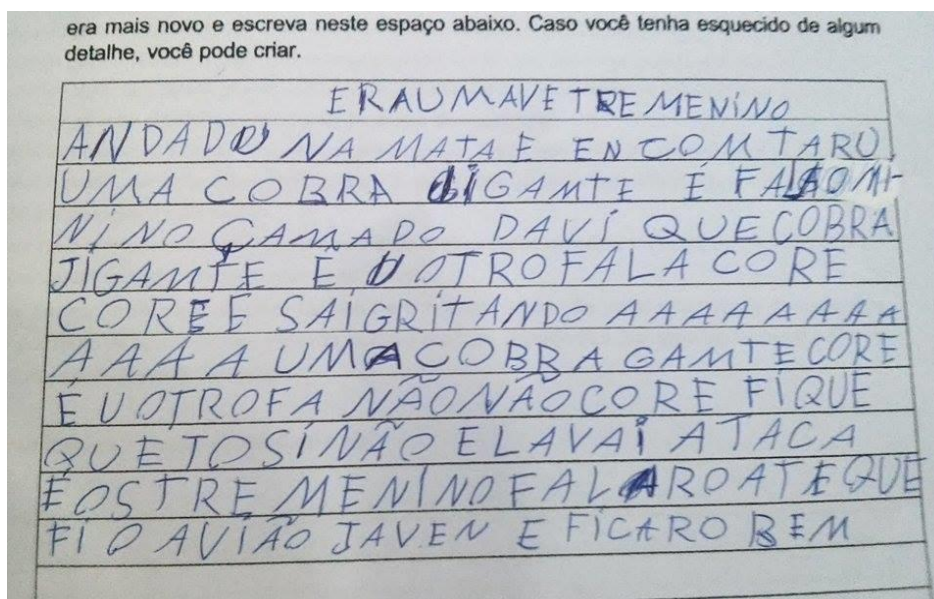 era mais novo e escreva neste espaço abaixo. Caso você tenha esquecido de algum
detalhe, você pode criar.
ERAUMAVETREMENINO
ANDADO NA MATA E ENCOMTARU
UMA COBRA GIGAMTE E FALOMI-
NINO ÇAMADO DAVI QUECOBRA
JIGAMTE E UOTROFALA CORE
COREE SAIGRITANDO AAAAAAAA
AAAA UMACOBRA GAMTECORE
E UOTROFA NÃONÃOCORE FIQUE
QUETOSINÃO ELAVAI ATACA
EOSTREMENINOFALAROATEQUE
FI O AVIÃO JAVEN E FICARO BEM